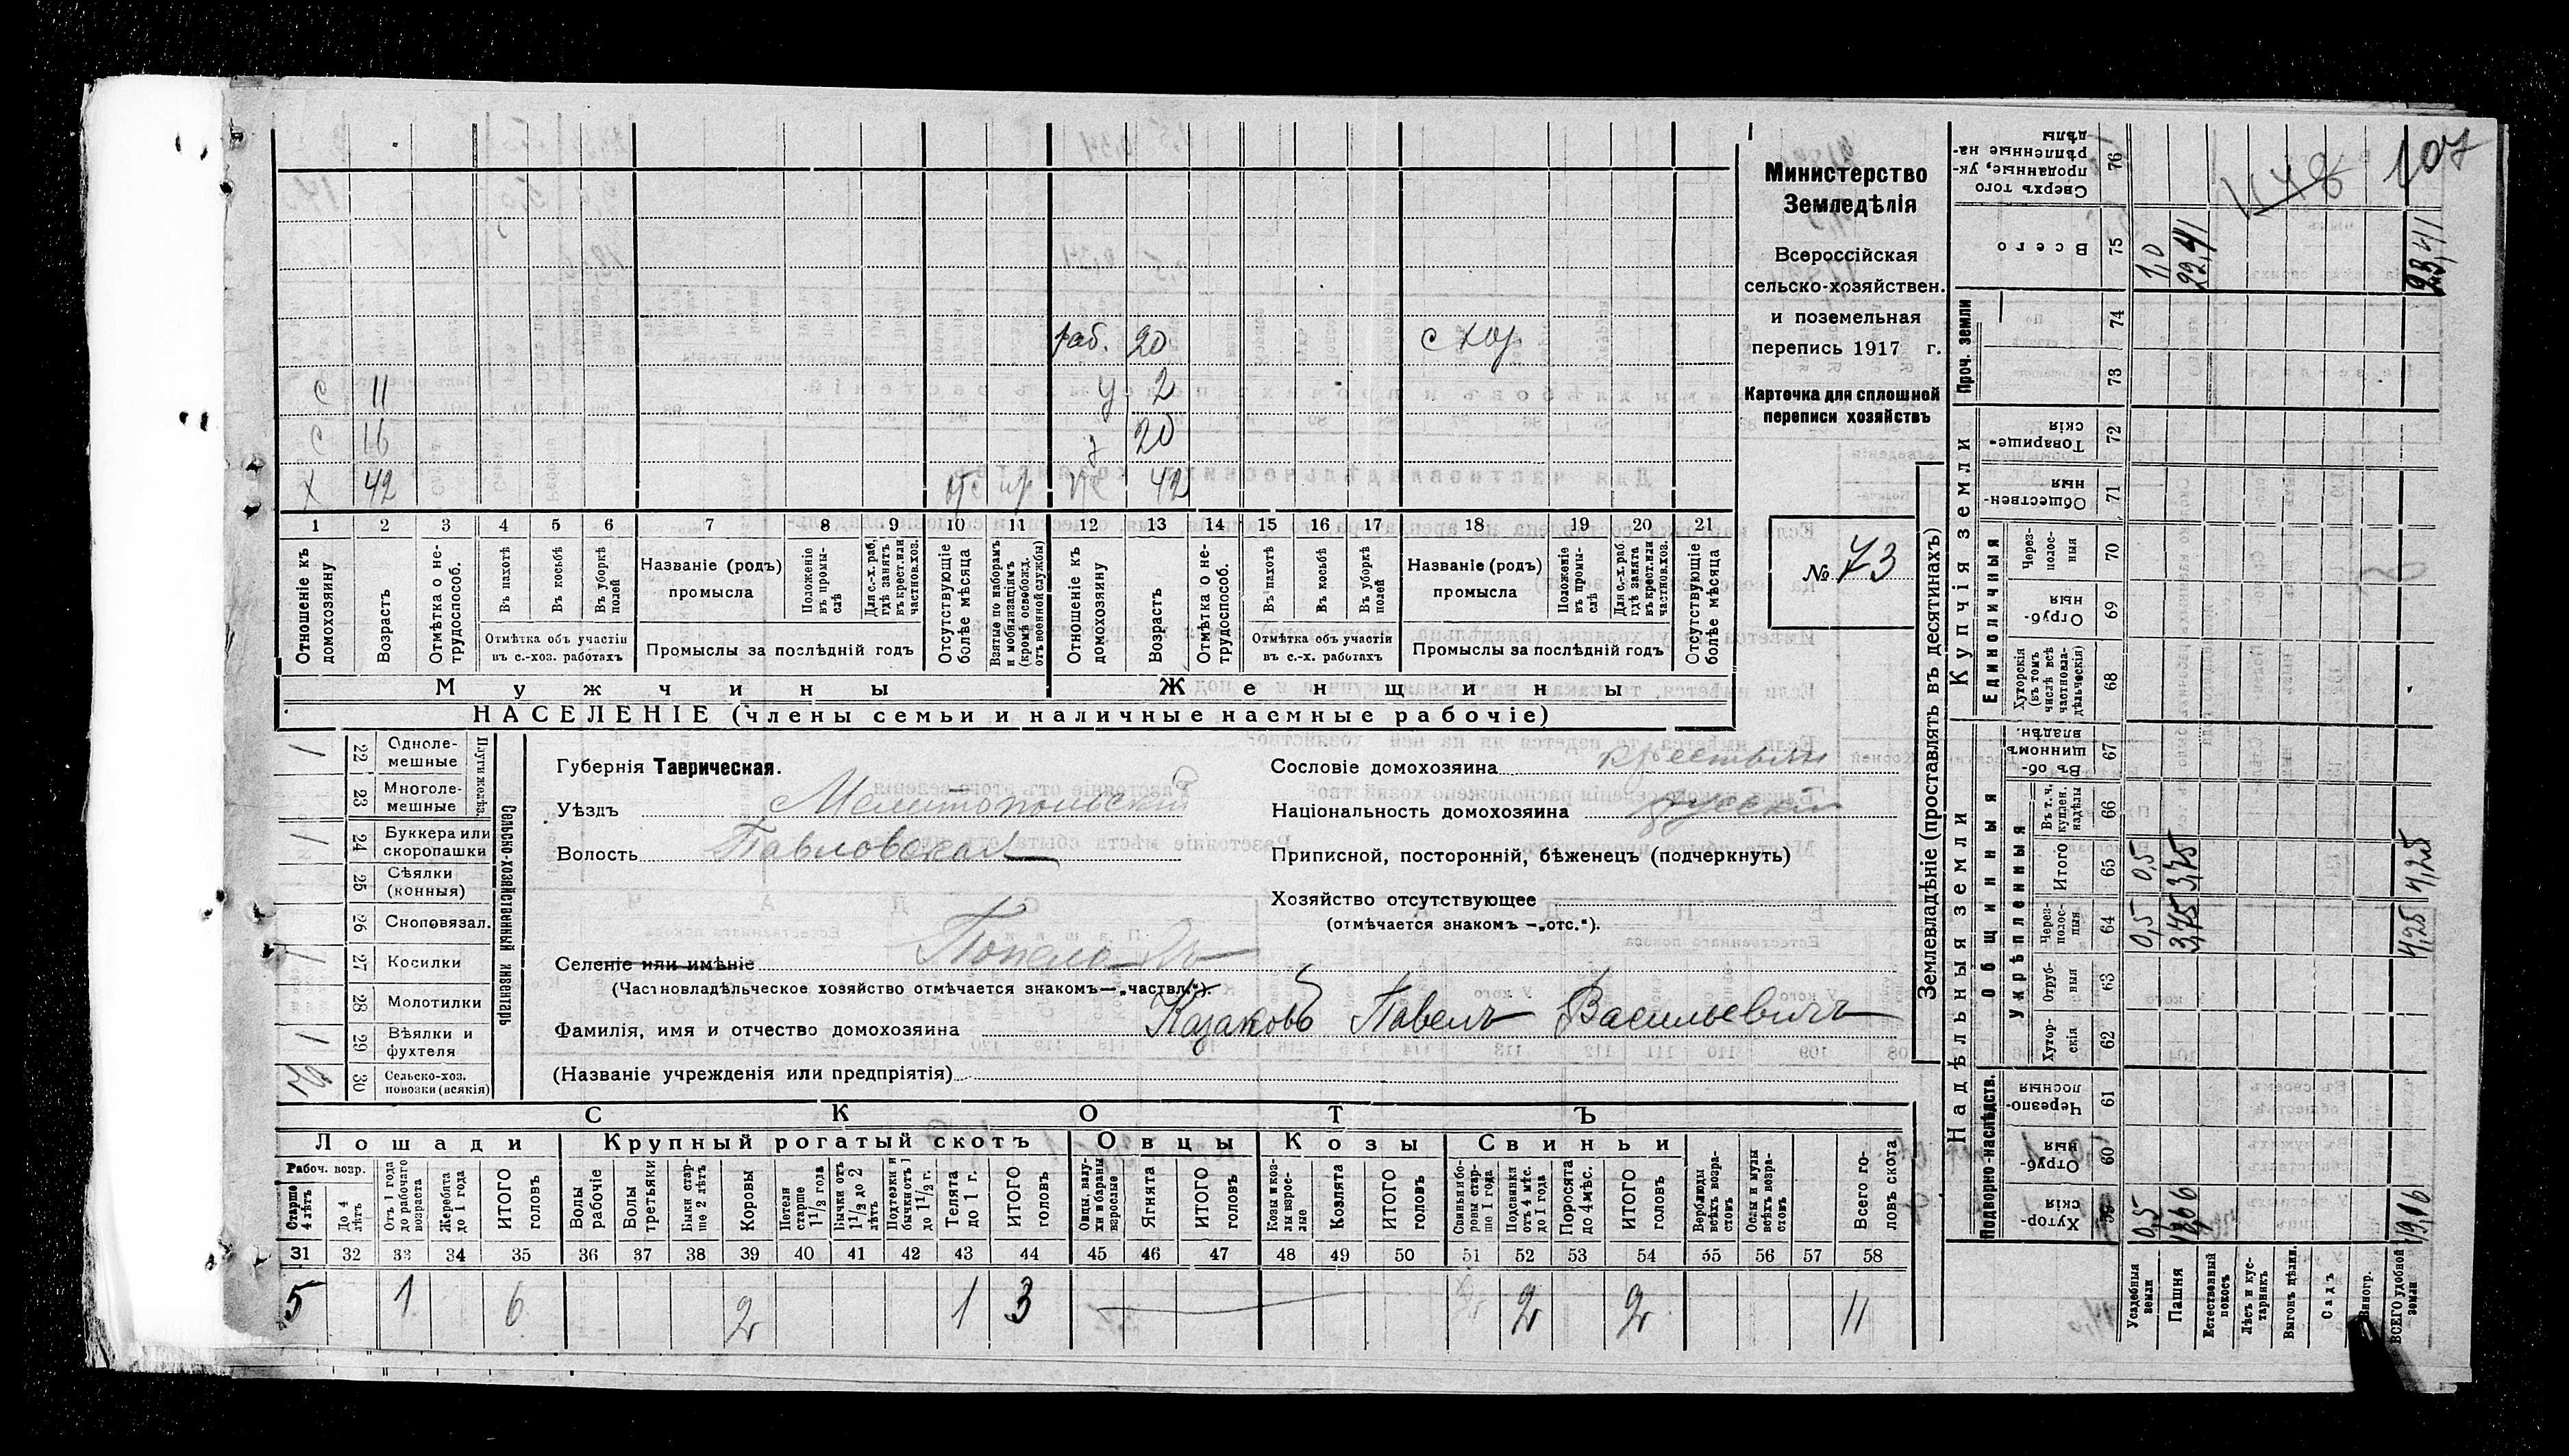 107
Министерство
Земледѣлія
Всероссійская
сельско-хозяйствен.
и поземельная
перепись 1917 г.
Карточка для сплошной
переписи хозяйствъ
№ 73
раб. 20
с 11 у 2
с 16 20
х 42 42
1 2 3 4 5 6 7 8 9 10 11 12 13 14 15 16 17 18 19 20 21
Отношеніе къ домохозяину
Возрастъ
Отмѣтка о не-трудоспособ.
Въ пахотѣ
Въ косьбѣ
Въ уборкѣ полей
Отмѣтка объ участіи въ с.-хоз. работахъ
Названіе (родъ) промысла
Положеніе въ промы-слѣ
Для с.-х. раб, гдѣ занятъ въ крест. или частнов. хоз.
Промыслы за послѣдній годъ
Отсутствующіе болѣе мѣсяца
Взятые по наборамъ и мобилизаціямъ (кромѣ освобожд. отъ военной службы)
Отношеніе къ домохозяину
Возрастъ
Отмѣтка о не-трудоспособ.
Въ пахотѣ
Въ косьбѣ
Въ уборкѣ полей
Отмѣтка объ участіи въ с.-х. работахъ
Названіе (родъ) промысла
Положеніе въ промы-слѣ
Для с.-х. раб гдѣ занята въ крест. или частнов. хоз.
Промыслы за послѣдній годъ
Отсутствующіе болѣе мѣсяца
Мужчины Женщины
НАСЕЛЕНІЕ (члены семьи и наличные наемные рабочіе)
Сельско-хозяйственный инвентарь
1 22 Одноле-мешные
23 Многоле-мешные
1 24 Буккера или скоропашки
25 Сѣялки (конныя)
26 Сноповязал.
1 27 Косилки
28 Молотилки
1 29 Вѣялки и фухтеля
30 Сельско-хоз. повозки (всякія)
Губернія Таврическая.
Уѣздъ Мелитопольскій
Волость Павловская
Селеніе или имѣніе
(Частновладѣльческое хозяйство отмѣчается знакомъ—„частвл.“).
Фамилія, имя и отчество домохозяина Казаковъ Павелъ Васильевичъ
(Названіе учрежденія или предпріятія)
Сословіе домохозяина крестьян
Національность домохозяина русскій
Приписной, посторонній, бѣженецъ (подчеркнуть)
Хозяйство отсутствующее
(отмѣчается знакомъ —„отс.“).
СКОТЪ
Лошади Крупный рогатый скотъ Овцы Козы Свиньи
Рабоч. возр.
Старше 4 лѣтъ
До 4 лѣтъ
Отъ 1 года до рабочаго возраста
Жеребята до 1 года
ИТОГО головъ
Волы рабочіе
Волы третьяки
Быки стар-ше 2 лѣтъ
Коровы
Нетели старше 1 1/2 года
Бычки отъ 1 1/2 до 2 лѣтъ
Подтелки и бычки отъ 1 до 1 1/2 г.
Телята до 1 г.
ИТОГО головъ
Овцы, валу-хи и бараны взрослые
Ягнята
ИТОГО головъ
Козы и коз-лы взрос-лые
Козлята
ИТОГО головъ
Свиньи и бо-ровы стар-ше 1 года
Подсвинки отъ 4 мѣс. до 1 года
Поросята до 4 мѣс.
ИТОГО головъ
Верблюды всѣхъ возра-стовъ
Ослы и мулы всѣхъ возра-стовъ
Всего го-ловъ скота
31 32 33 34 35 36 37 38 39 40 41 42 43 44 45 46 47 48 49 50 51 52 53 54 55 56 57 58
5 1 6 2 1 3 2 2 11
Землевладѣніе (проставлять въ десятинахъ)
Надѣльныя земли Купчія земли Проч. земли
Подворно-наслѣдств. Общинныя Единоличныя
Укрѣпленныя
Хутор-скія 59
Отруб-ныя 60
Черезпо-лосныя 61
Хутор-скія 62
Отруб-ныя 63
Через-полос-ныя 64
Итого 65
Въ т. ч. куплен. надѣлы 66
Въ об-щинномъ владѣн. 67
Хуторскія (въ томъ числѣ всѣ частновла-дѣльческія) 68
Отруб-ныя 69
Через-полос-ныя 70
Обществен-ныя 71
Товарище-скія 72
73
74
Всего 75
Сверхъ того проданные, ук-рѣпленные на-дѣлы 76
Усадебныя земли 0,5 0,5 0,5 1,0
Пашня 3,75 3,75 22,41
Естественный покосъ
Лѣсъ и кус-тарникъ
Выгонъ цѣлин.
Садъ
Виногр.
ВСЕГО удобной земли 4,25 4,25 23,41